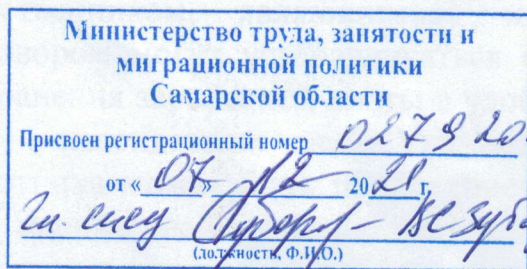 Министерство труда, занятости и
миграционной политики
Самарской области
Присвоен регистрационный номер 027920
от «07» 12 2021 г.
Гл. спец
(должность, Ф.И.О.)